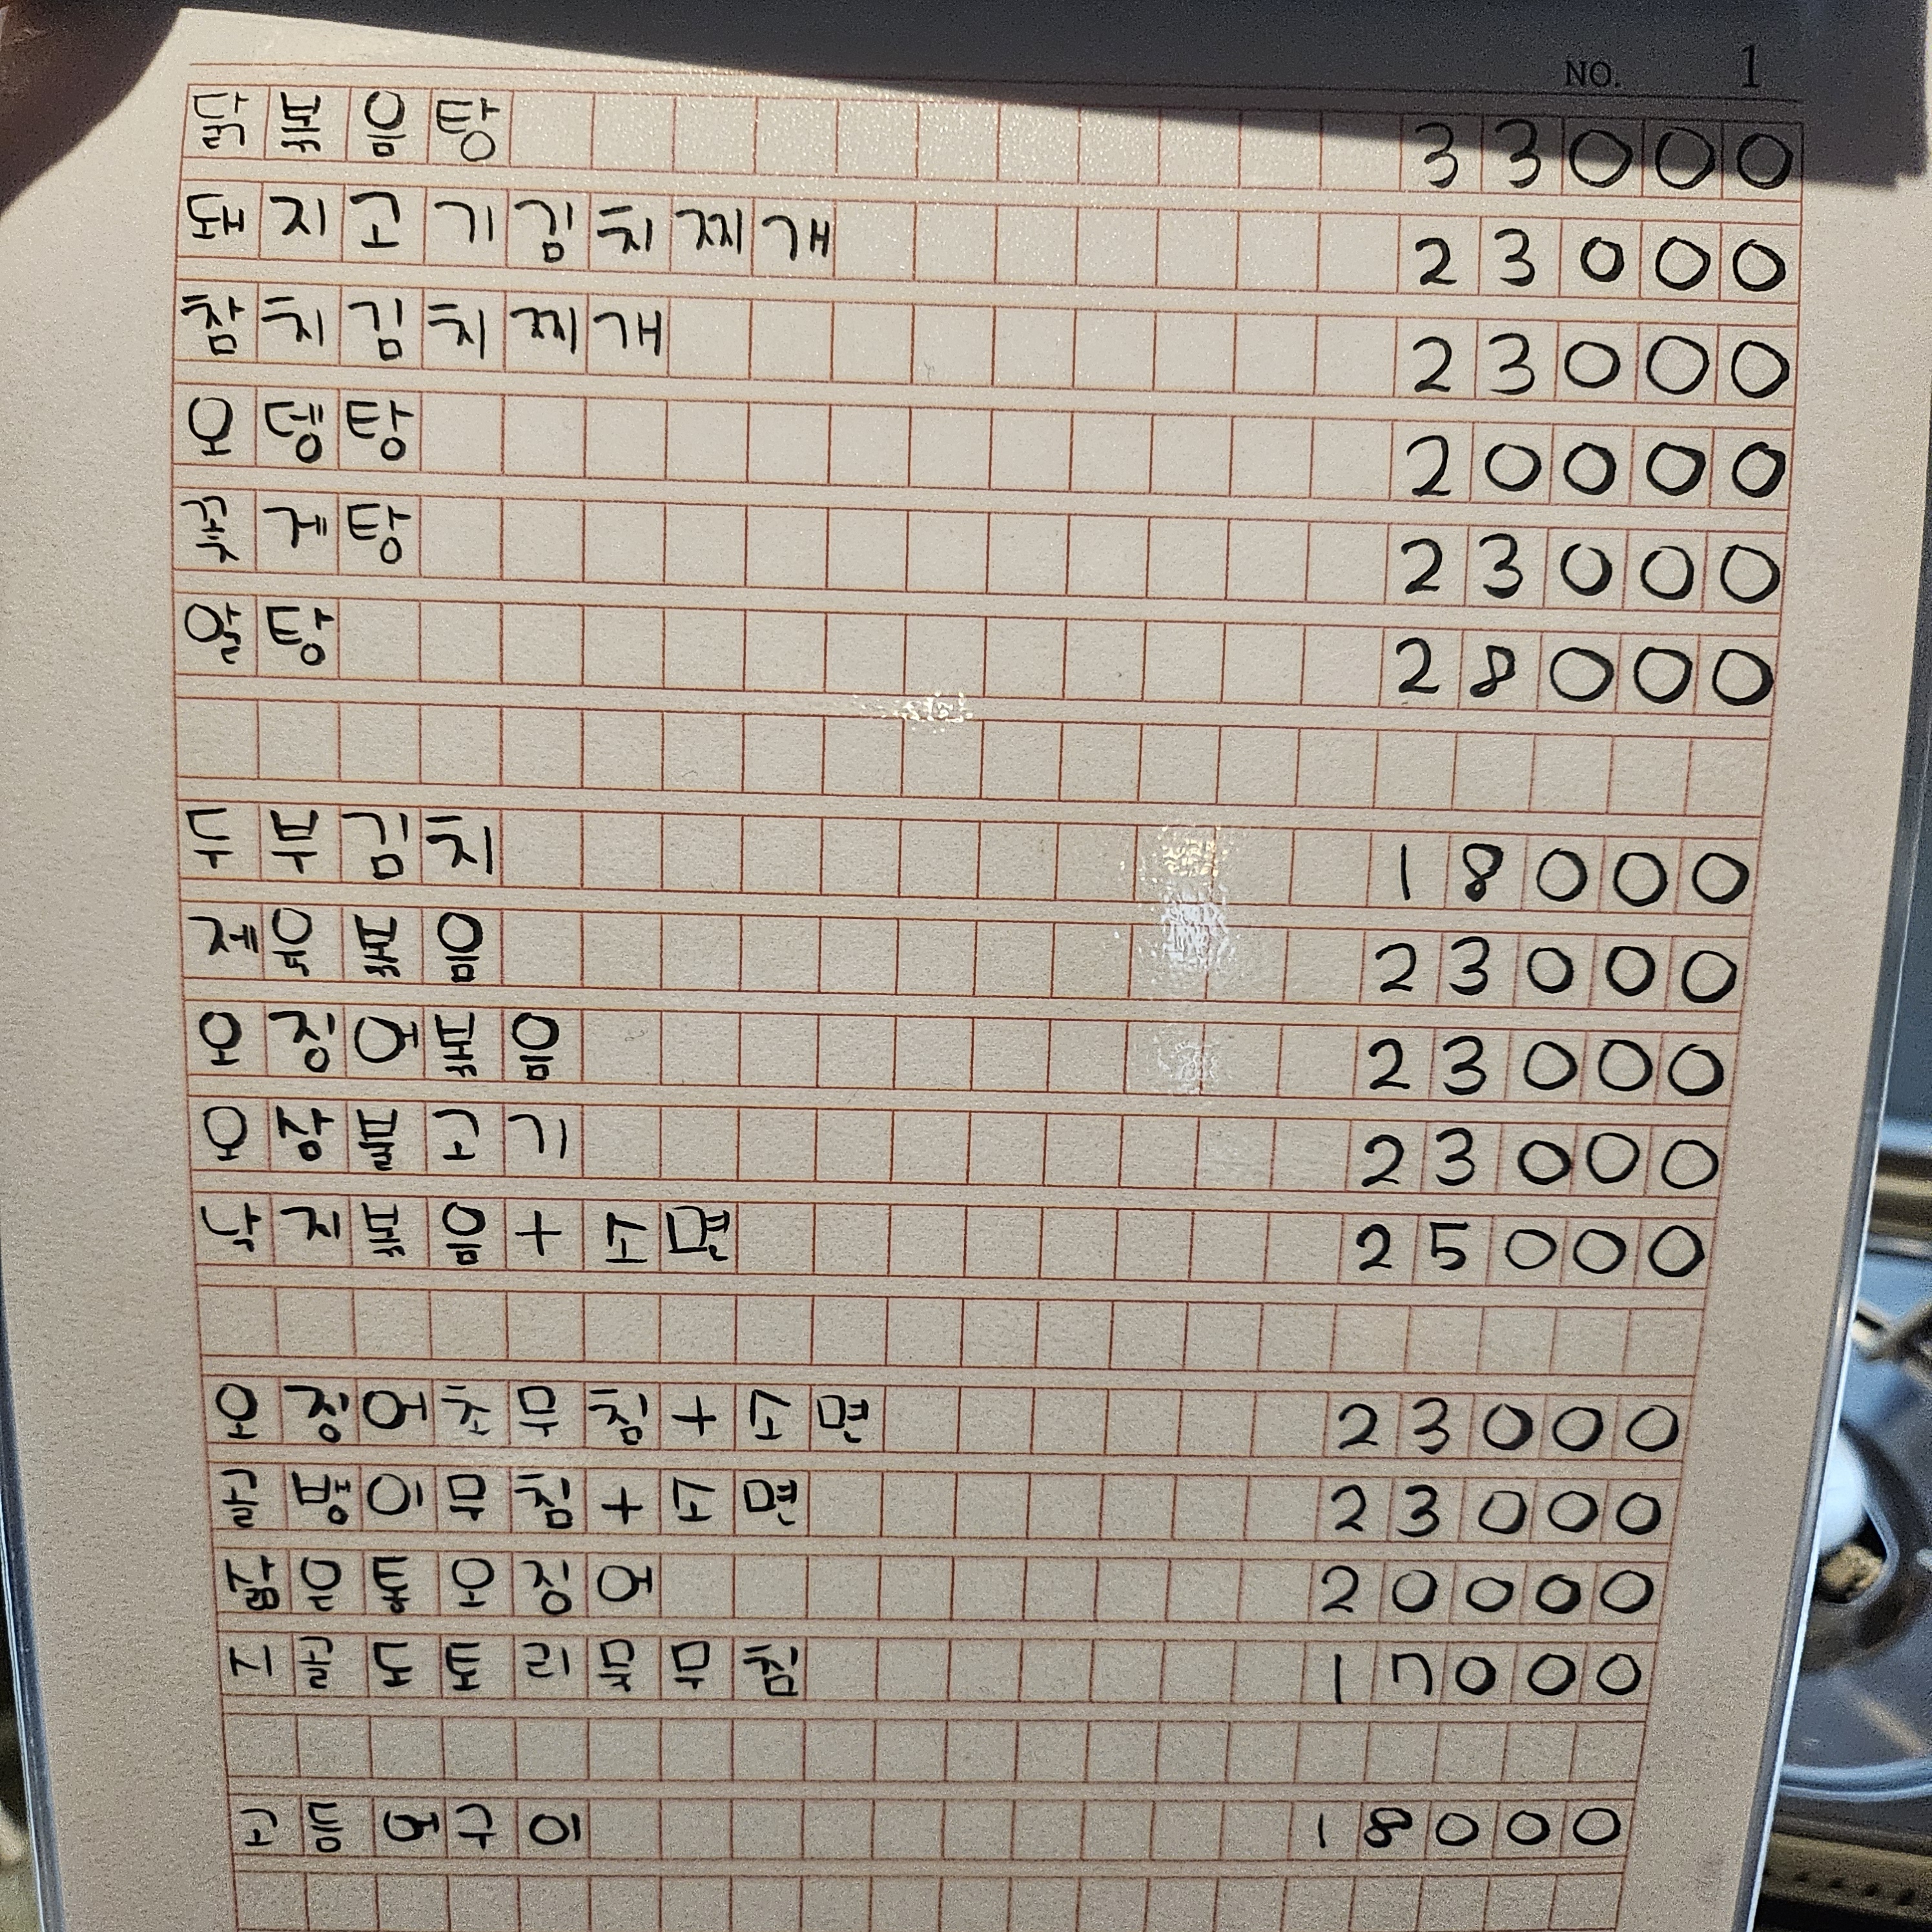 NO. 1
닭볶음탕 33000
돼지고기김치찌개 23000
참치김치찌개 23000
오뎅탕 20000
꽃게탕 23000
알탕 28000
두부김치 18000
제육볶음 23000
오징어볶음 23000
오삼불고기 23000
낙지볶음+소면 25000
오징어초무침+소면 23000
골뱅이무침+소면 23000
삶은통오징어 20000
시골도토리묵무침 17000
고등어구이 18000